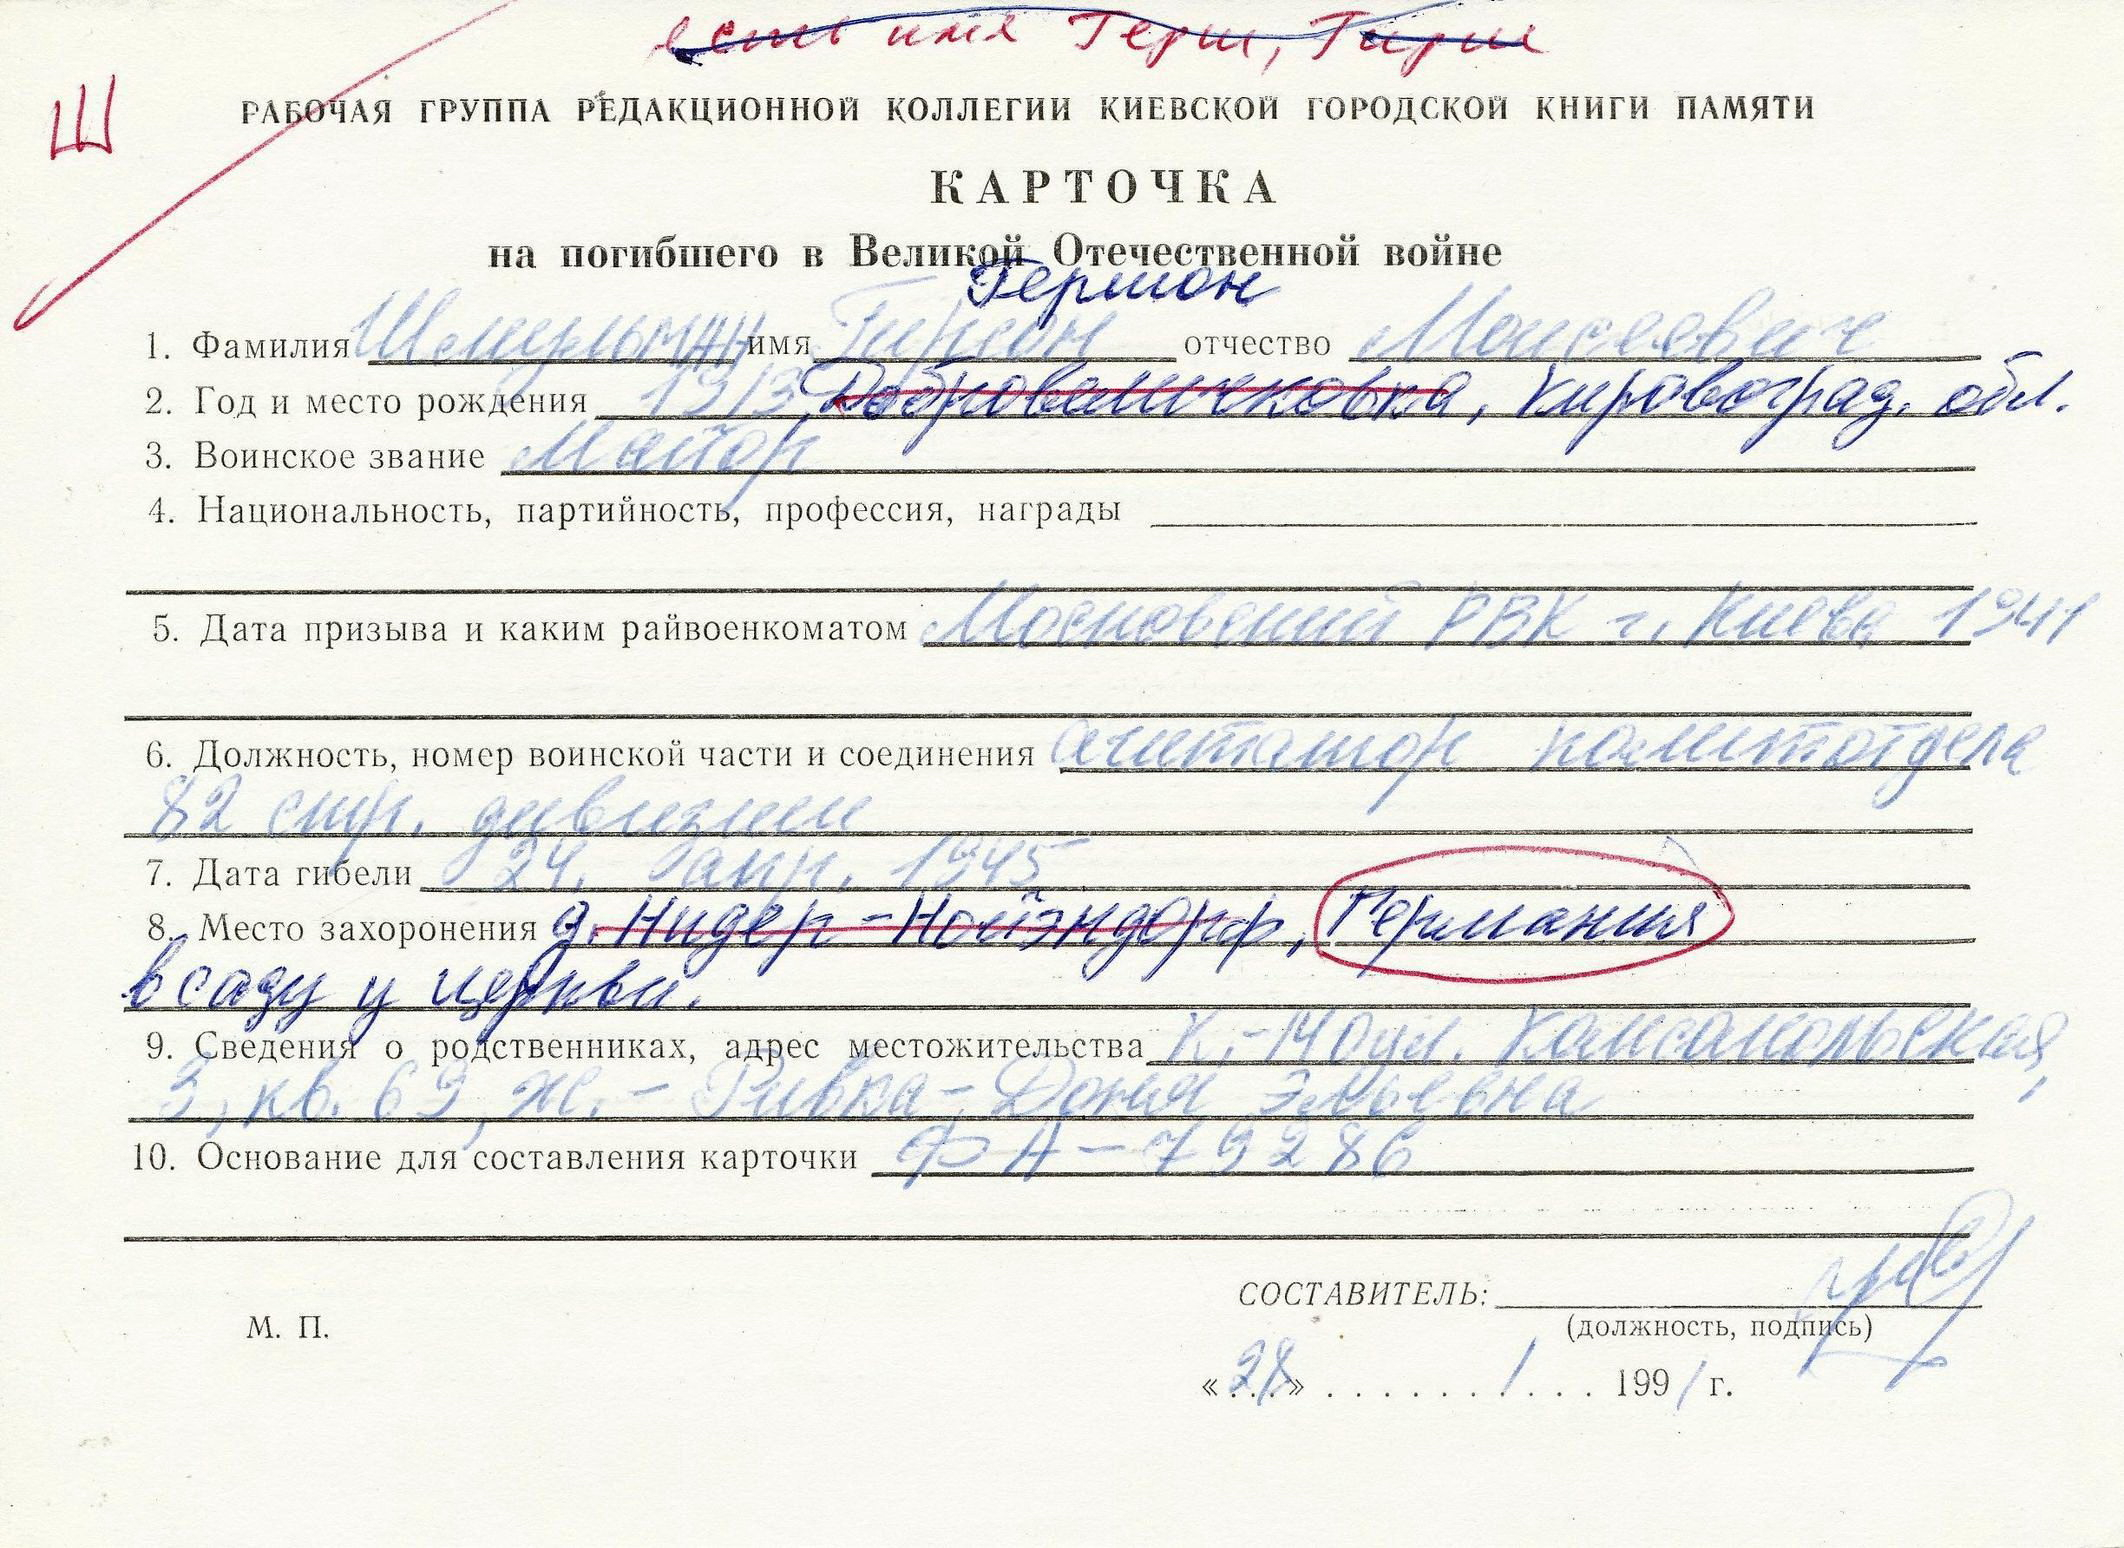 есть имя Герш, Гирш
Ш
РАБОЧАЯ ГРУППА РЕДАКЦИОННОЙ КОЛЛЕГИИ КИЕВСКОЙ ГОРОДСКОЙ КНИГИ ПАМЯТИ
КАРТОЧКА
на погибшего в Великой Отечественной войне
Гершон
1. Фамилия Шмульман имя Гиршон отчество Моисеевич
2. Год и место рождения 1913, Добровеличковка, Кировоград. обл.
3. Воинское звание Майор
4. Национальность, партийность, профессия, награды
5. Дата призыва и каким райвоенкоматом Московский РВК г. Киева 1941
6. Должность, номер воинской части и соединения агитатор политотдела
82 стр. дивизии
7. Дата гибели 24. апр. 1945
8. Место захоронения д. Нидер-Нойэндорф, Германия
в саду у церкви.
9. Сведения о родственниках, адрес местожительства К.-140 ул. Комсомольская,
3, кв. 69, ж. - Ривка-Доня Эльевна
10. Основание для составления карточки ФА-79286
СОСТАВИТЕЛЬ:
(должность, подпись)
М. П.
«28» . . . . . . 1 . . . . 1991 г.